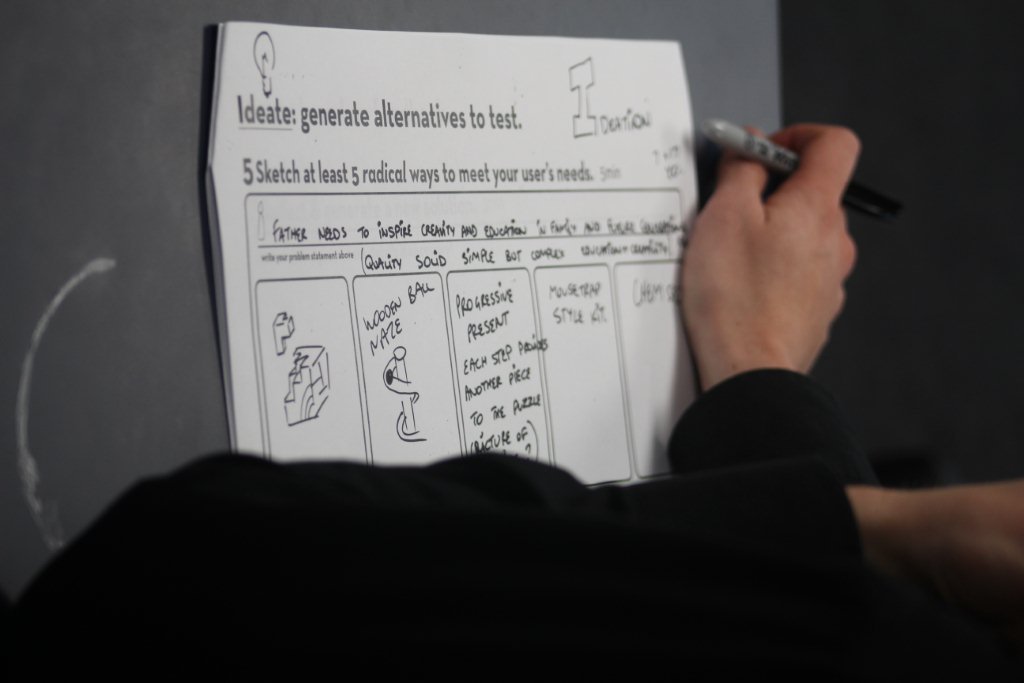 Ideate: generate alternatives to test.
IDEATION
5 Sketch at least 5 radical ways to meet your user's needs. 5min
FATHER NEEDS TO INSPIRE CREATIVITY AND EDUCATION IN FAMILY AND FUTURE GENERATIONS
write your problem statement above
(QUALITY SOLID SIMPLE BUT COMPLEX EDUCATION + CREATIVITY)
WOODEN BALL
MAZE
PROGRESSIVE
PRESENT
EACH STEP PROVIDES
ANOTHER PIECE
TO THE PUZZLE
(PICTURE OF
MOUSETRAP
STYLE KIT.
CHEM